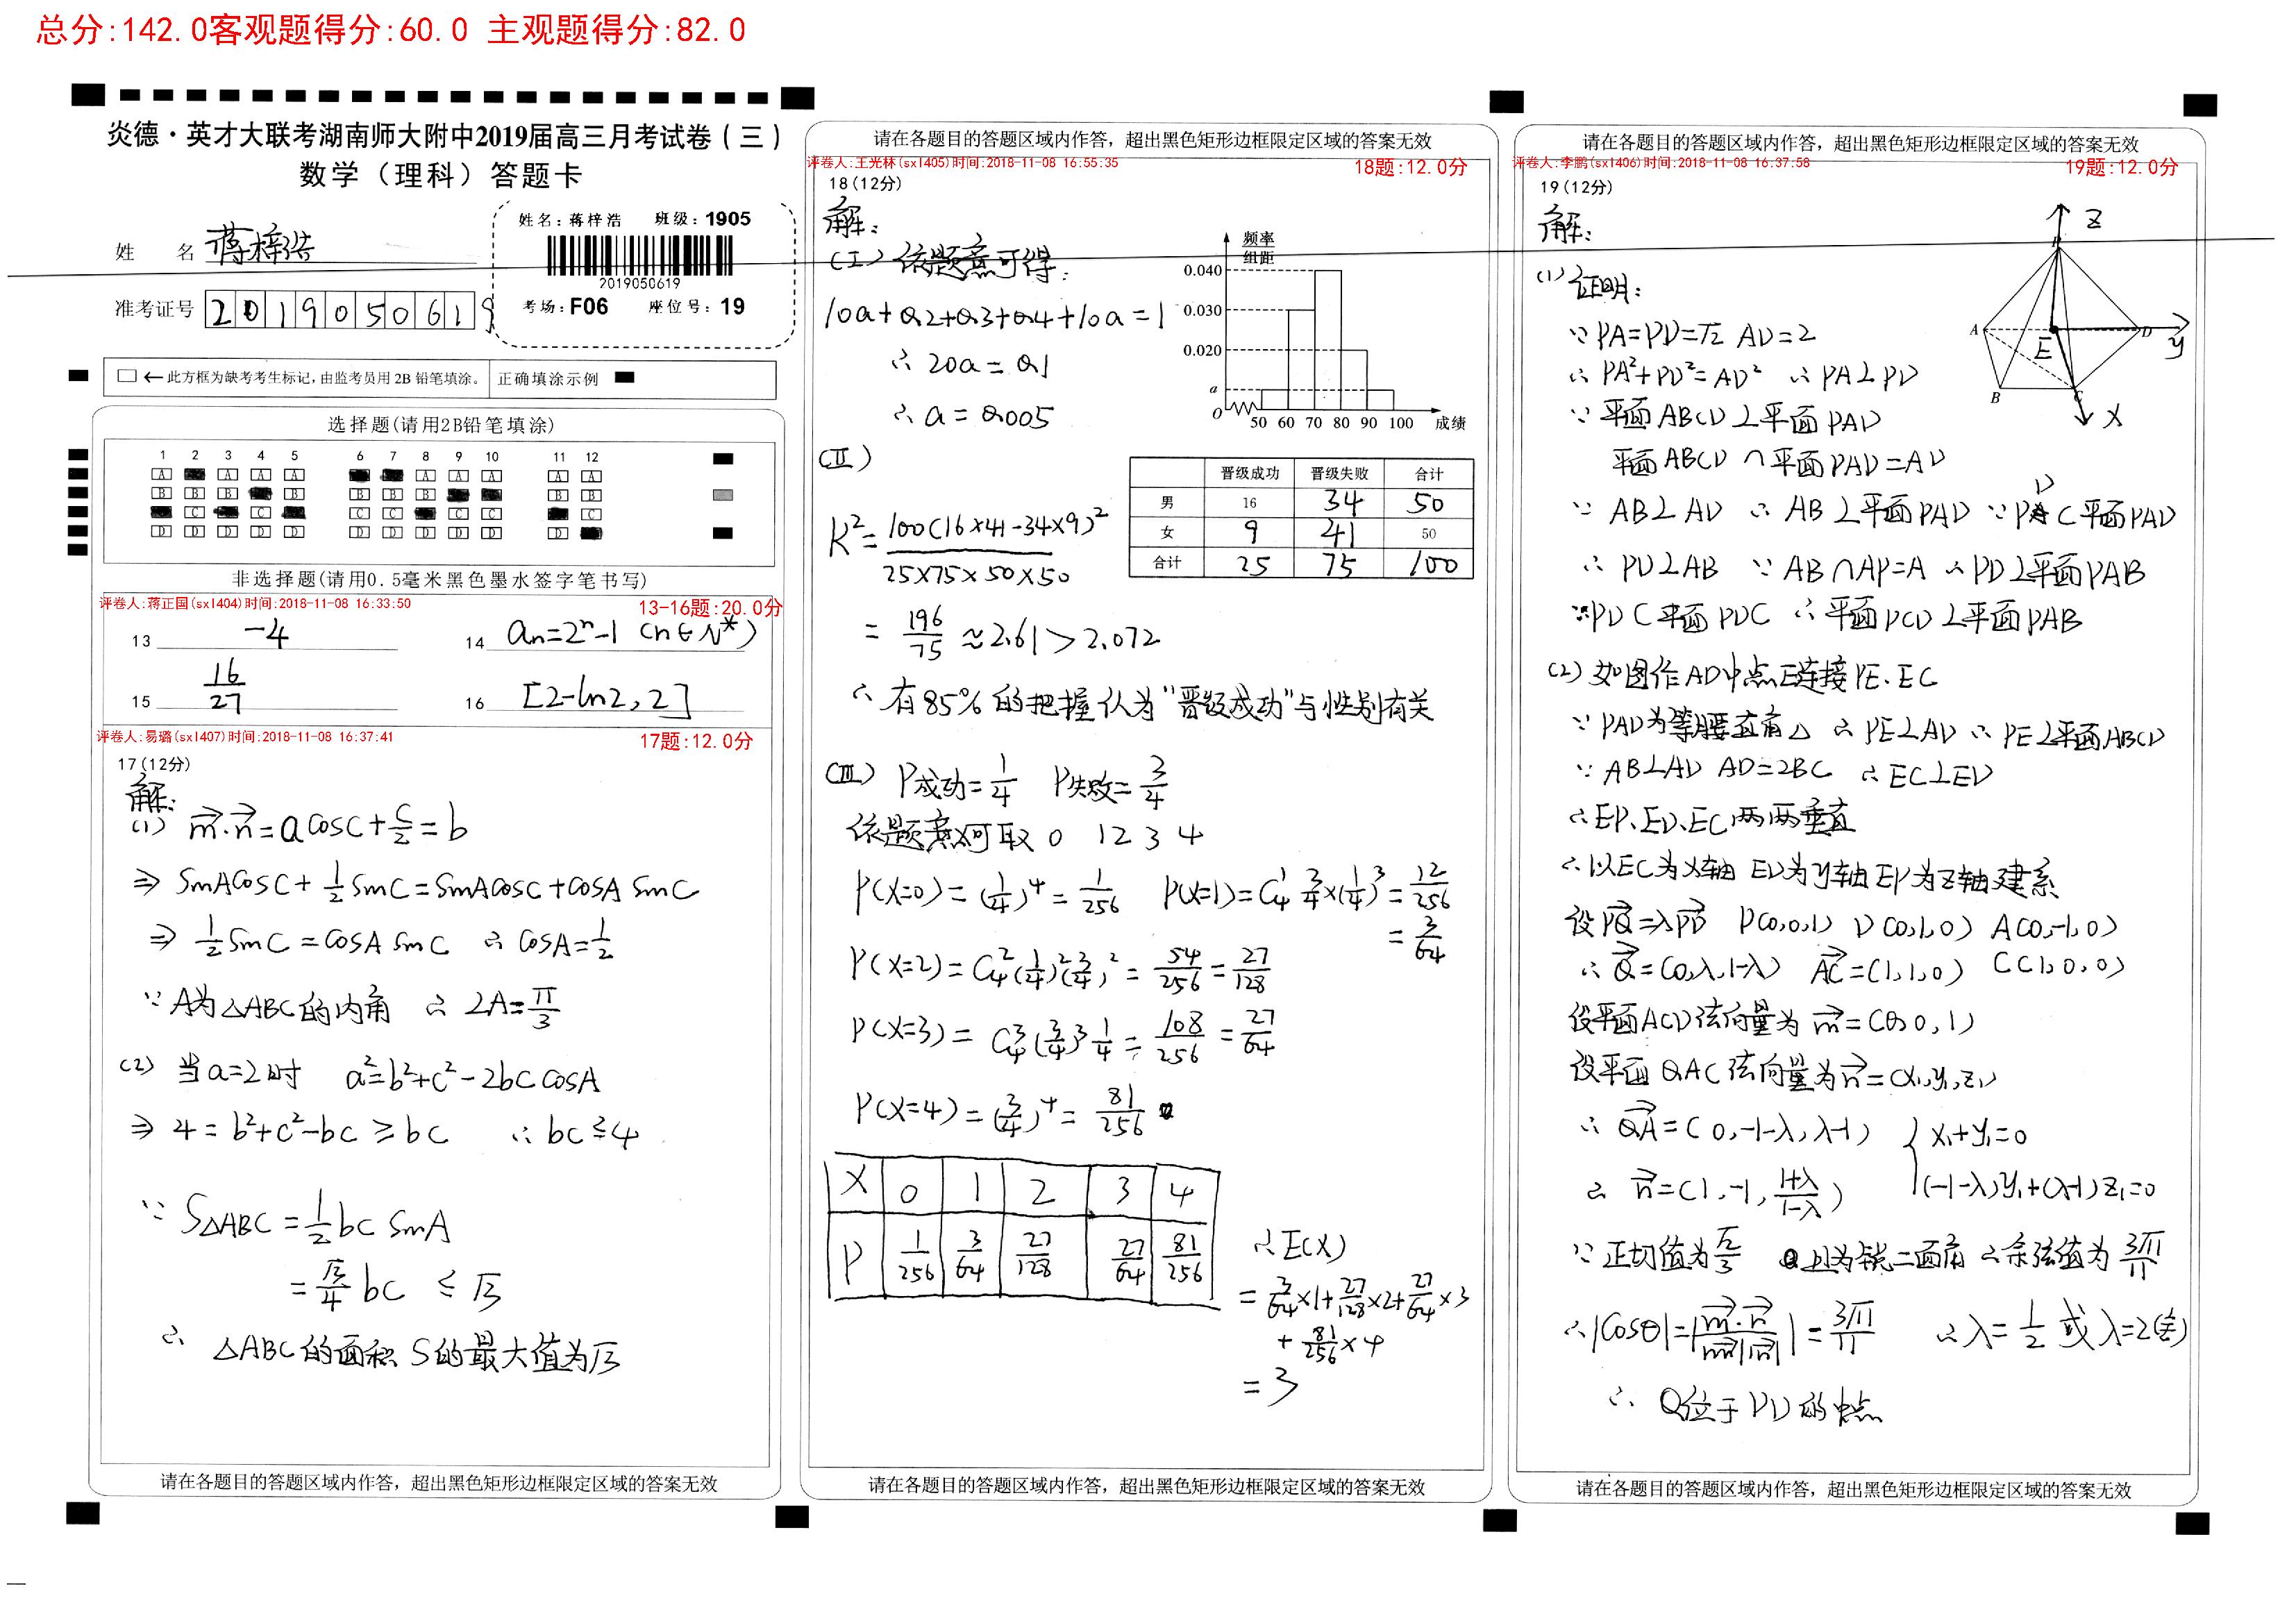 总分:142.0客观题得分:60.0 主观题得分:82.0
炎德·英才大联考湖南师大附中2019届高三月考试卷(三)
数学(理科)答题卡
姓 名 蒋梓浩
姓名:蒋梓浩 班级:1905
2019050619
考场:F06 座位号:19
准考证号 2019050619
←此方框为缺考考生标记,由监考员用2B铅笔填涂。 正确填涂示例
选择题(请用2B铅笔填涂)
1 2 3 4 5 6 7 8 9 10 11 12
非选择题(请用0.5毫米黑色墨水签字笔书写)
评卷人:蒋正国(sx1404)时间:2018-11-08 16:33:50 13-16题:20.0分
13 -4 14 an=2ⁿ-1 (n∈N*)
15 16/27 16 [2-ln2,2]
评卷人:易璐(sx1407)时间:2018-11-08 16:37:41 17题:12.0分
17(12分)
解:
(1) m·n=acosC+c/2=b
⇒ sinAcosC+1/2sinC=sinAcosC+cosAsinC
⇒ 1/2sinC=cosAsinC ∴cosA=1/2
∵A为△ABC的内角 ∴∠A=π/3
(2) 当a=2时 a²=b²+c²-2bccosA
⇒ 4=b²+c²-bc≥bc ∴bc≤4
∵ S△ABC=1/2bcsinA
=√3/4bc ≤√3
∴ △ABC的面积S的最大值为√3
请在各题目的答题区域内作答,超出黑色矩形边框限定区域的答案无效
请在各题目的答题区域内作答,超出黑色矩形边框限定区域的答案无效
评卷人:王光林(sx1405)时间:2018-11-08 16:55:35 18题:12.0分
18(12分)
解:
(I)依题意可得:
10a+0.2+0.3+0.4+10a=1
∴20a=0.1
∴a=0.005
频率
组距
0.040
0.030
0.020
a
O 50 60 70 80 90 100 成绩
(II)
晋级成功 晋级失败 合计
男 16 34 50
女 9 41 50
合计 25 75 100
K²=100(16×41-34×9)²/25×75×50×50
=196/75≈2.61>2.072
∴有85%的把握认为"晋级成功"与性别有关
(III) P成功=1/4 P失败=3/4
依题意X可取0 1 2 3 4
P(X=0)=(1/4)⁴=1/256 P(X=1)=C₄¹ 3/4×(1/4)³=12/256
=3/64
P(X=2)=C₄²(1/4)²(3/4)²=54/256=27/128
P(X=3)=C₄³(3/4)³1/4=108/256=27/64
P(X=4)=(3/4)⁴=81/256
X 0 1 2 3 4
P 1/256 3/64 27/128 27/64 81/256
∴E(X)
=3/64×1+27/128×2+27/64×3
+81/256×4
=3
请在各题目的答题区域内作答,超出黑色矩形边框限定区域的答案无效
请在各题目的答题区域内作答,超出黑色矩形边框限定区域的答案无效
评卷人:李鹏(sx1406)时间:2018-11-08 16:37:58 19题:12.0分
19(12分)
解:
P A B C D E x y z
(1)证明:
∵PA=PD=√2 AD=2
∴PA²+PD²=AD² ∴PA⊥PD
∵平面ABCD⊥平面PAD
平面ABCD∩平面PAD=AD
∵AB⊥AD ∴AB⊥平面PAD ∵PD⊂平面PAD
∴PD⊥AB ∵AB∩AP=A ∴PD⊥平面PAB
∵PD⊂平面PDC ∴平面PCD⊥平面PAB
(2)如图作AD中点E连接PE、EC
∵PAD为等腰直角△ ∴PE⊥AD ∴PE⊥平面ABCD
∵AB⊥AD AD=2BC ∴EC⊥ED
∴EP、ED、EC两两垂直
∴以EC为x轴 ED为y轴 EP为z轴建系
设PQ=λPD P(0,0,1) D(0,1,0) A(0,-1,0)
∴Q=(0,λ,1-λ) AC=(1,1,0) C(1,0,0)
设平面ACD法向量为m=(0,0,1)
设平面QAC法向量为n=(x₁,y₁,z₁)
∴QA=(0,-1-λ,λ-1) { x₁+y₁=0
∴n=(1,-1,1+λ/1-λ) (-1-λ)y₁+(λ-1)z₁=0
∵正切值为√2/3 且为锐二面角 ∴余弦值为3√11/11
∴|cosθ|=|m·n/|m||n||=3√11/11 ∴λ=1/2或λ=2(舍)
∴Q位于PD的中点
请在各题目的答题区域内作答,超出黑色矩形边框限定区域的答案无效